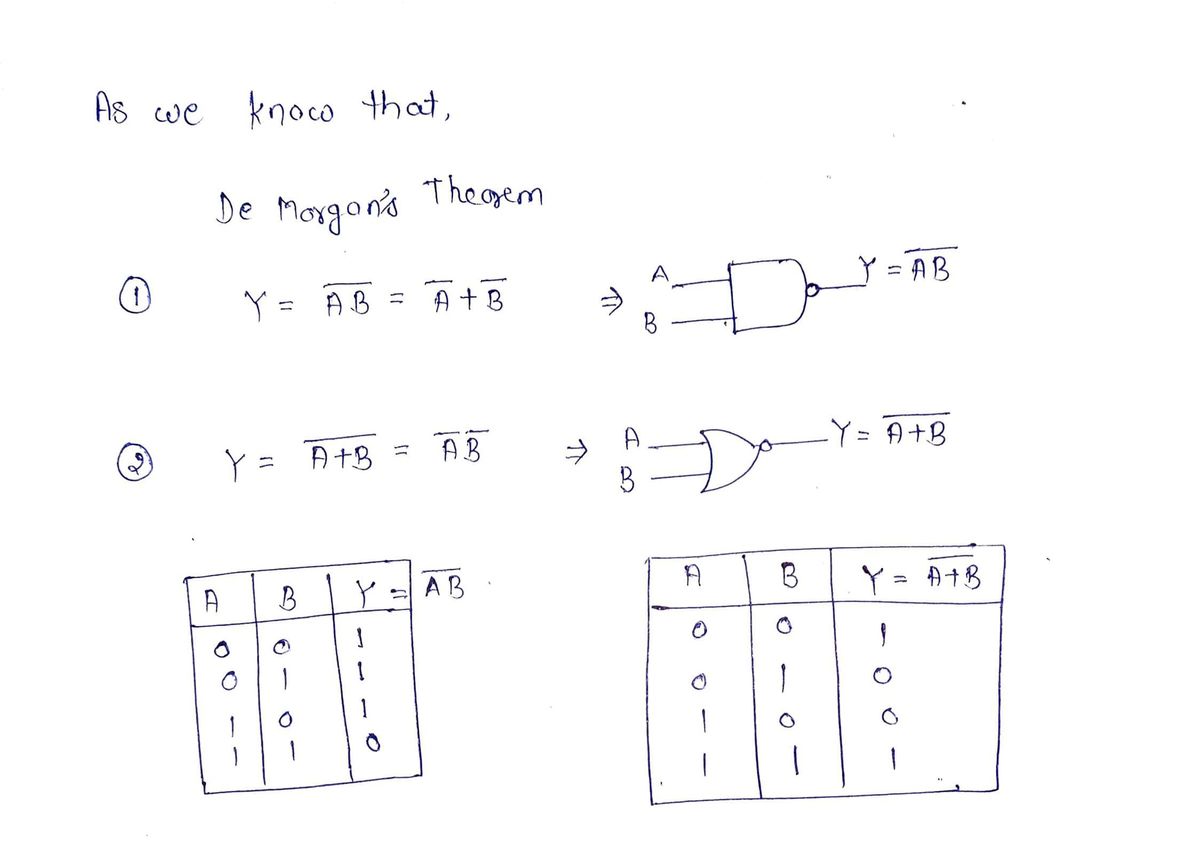 As we know that,
De Morgan's Theorem
① Y = A̅B̅ = A̅ + B̅ ⇒ A B Y = A̅B̅
② Y = A̅+̅B̅ = A̅ B̅ ⇒ A B Y = A̅+̅B̅
A B Y = A̅B̅
0 0 1
0 1 1
1 0 1
1 1 0
A B Y = A̅+̅B̅
0 0 1
0 1 0
1 0 0
1 1 1